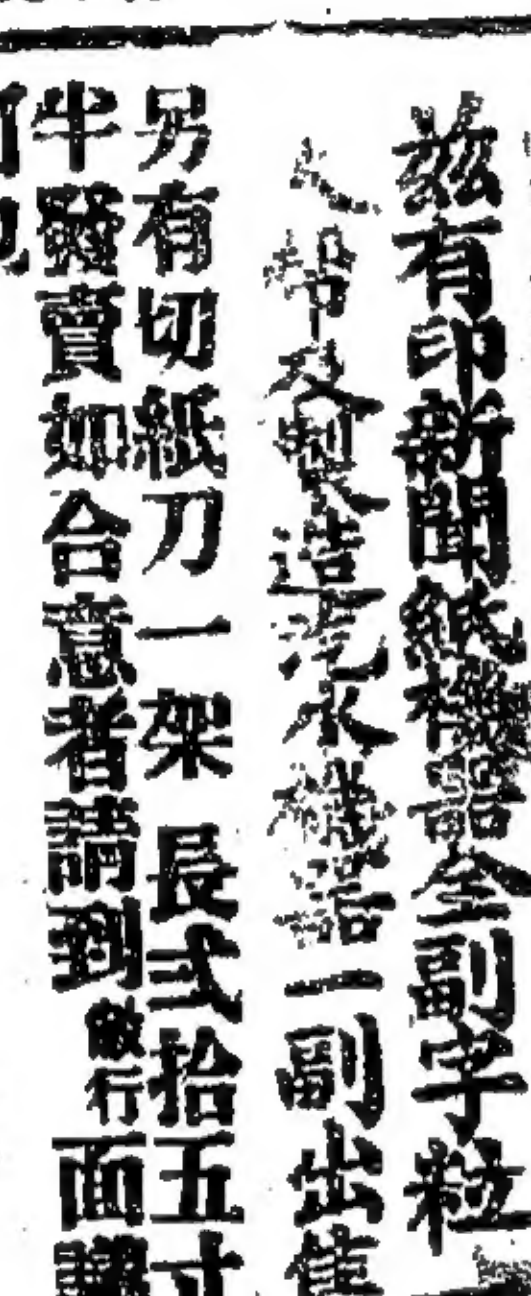 茲有印新聞紙機器全副字粒
大幫及製造汽水機器一副出售
另有切紙刀一架 長弍拾五寸
半發賣如合意者請到敝行面議